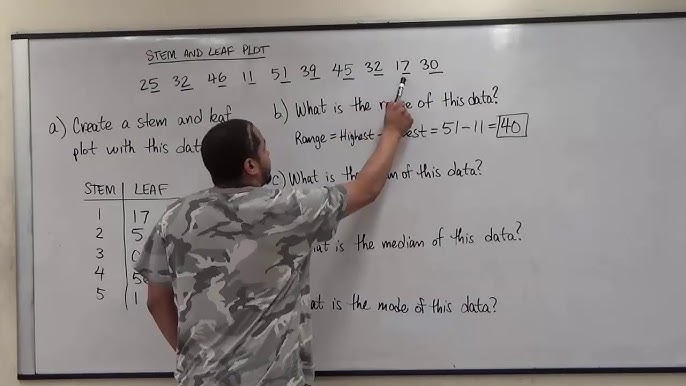 STEM AND LEAF PLOT
25 32 46 11 51 39 45 32 17 30
a) Create a stem and leaf
plot with this dat
b) What is the range of this data?
Range = Highest - = 51 - 11 = 40
STEM LEAF
1 17
2 5
3 0
4 5
5 1
c) What is the of this data?
is the median of this data?
is the mode of this data?